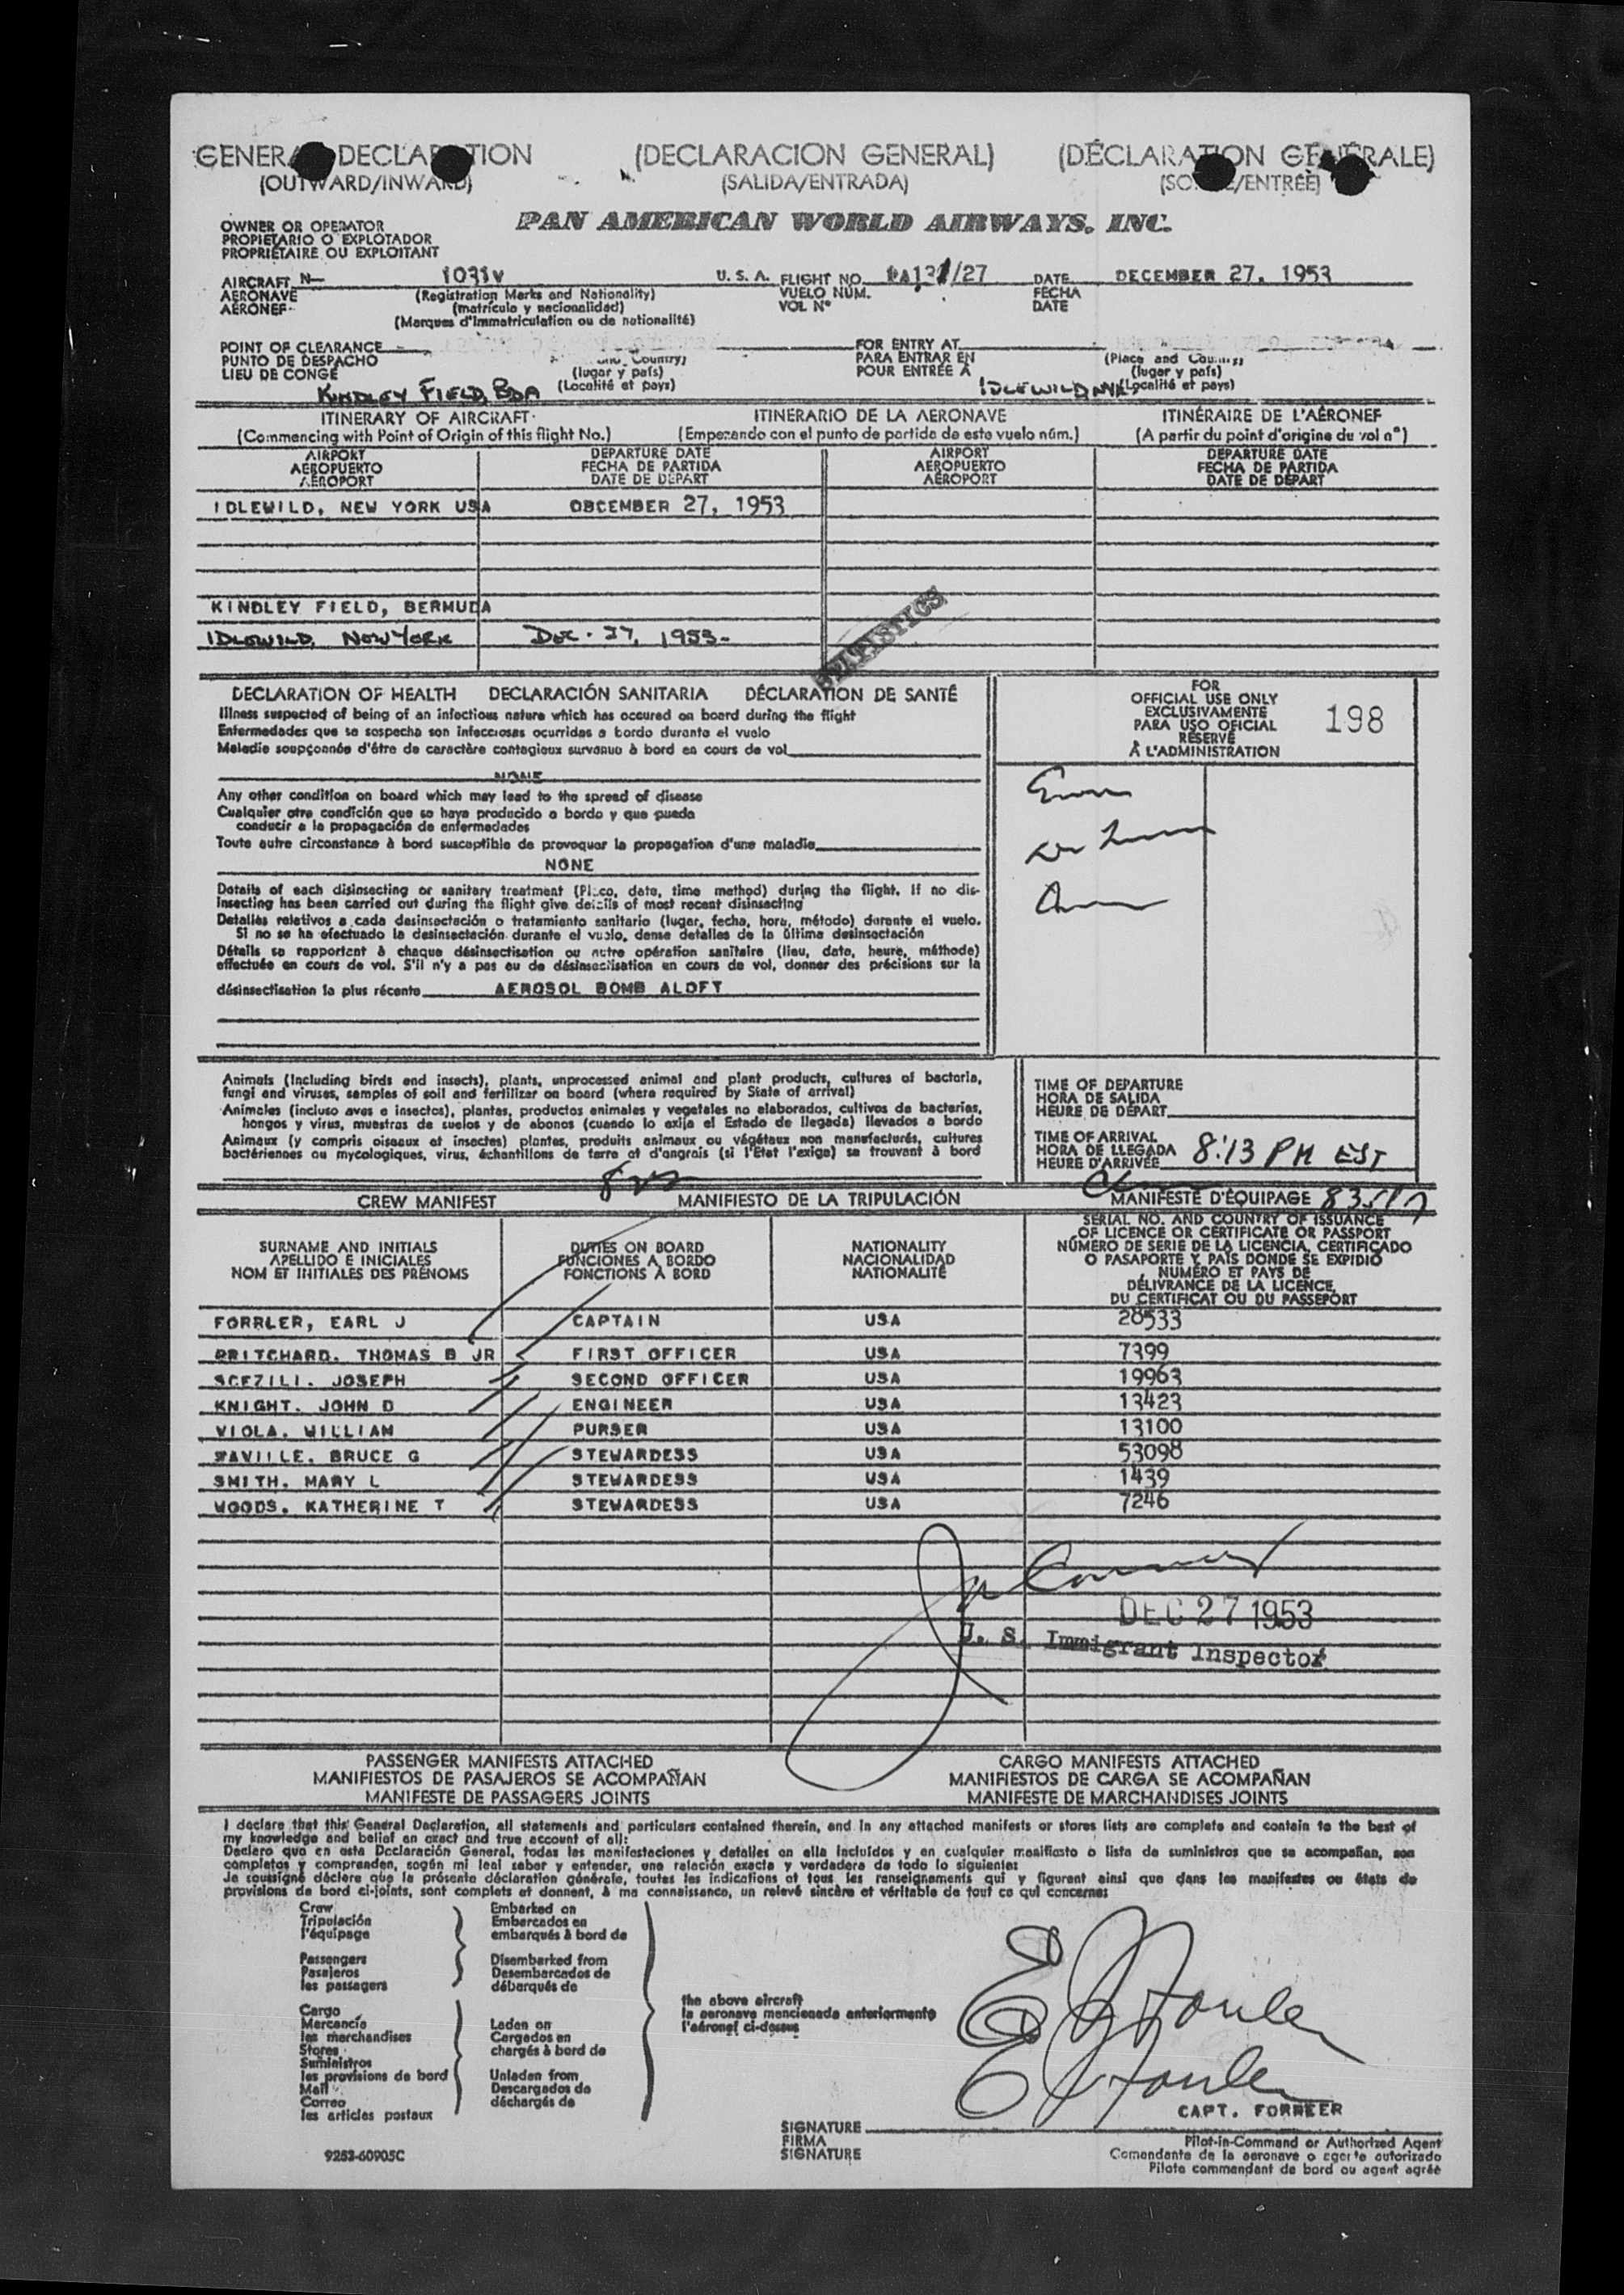 GENERAL DECLARATION (DECLARACION GENERAL) (DÉCLARATION GÉNÉRALE)
(OUTWARD/INWARD) (SALIDA/ENTRADA) (SORTIE/ENTRÉE)
OWNER OR OPERATOR
PROPIETARIO O EXPLOTADOR
PROPRIÉTAIRE OU EXPLOITANT
PAN AMERICAN WORLD AIRWAYS, INC.
AIRCRAFT N- 1031V U. S. A. FLIGHT NO. PA131/27 DATE DECEMBER 27, 1953
AERONAVE (Registration Marks and Nationality) VUELO NÚM. FECHA
AÉRONEF (matrícula y nacionalidad) VOL Nº DATE
(Marques d'Immatriculation ou de nationalité)
POINT OF CLEARANCE FOR ENTRY AT
PUNTO DE DESPACHO Country) PARA ENTRAR EN (Place and Country)
LIEU DE CONGÉ (lugar y país) POUR ENTRÉE À (lugar y país)
KINDLEY FIELD, BDA (Localité et pays) IDLEWILD NY (Localité et pays)
ITINERARY OF AIRCRAFT ITINERARIO DE LA AERONAVE ITINÉRAIRE DE L'AÉRONEF
(Commencing with Point of Origin of this flight No.) (Empezando con el punto de partida de este vuelo núm.) (A partir du point d'origine du vol nº)
AIRPORT DEPARTURE DATE AIRPORT DEPARTURE DATE
AEROPUERTO FECHA DE PARTIDA AEROPUERTO FECHA DE PARTIDA
AÉROPORT DATE DE DÉPART AÉROPORT DATE DE DÉPART
IDLEWILD, NEW YORK USA DECEMBER 27, 1953
KINDLEY FIELD, BERMUDA
IDLEWILD, NEW YORK DEC. 27, 1953-
STATISTICS
DECLARATION OF HEALTH DECLARACIÓN SANITARIA DÉCLARATION DE SANTÉ
Illness suspected of being of an infectious nature which has occured on board during the flight
Enfermedades que se sospecha son infecciosas ocurridas a bordo durante el vuelo
Maladie soupçonnée d'être de caractère contagieux survenue à bord en cours de vol
NONE
Any other condition on board which may lead to the spread of disease
Cualquier otra condición que se haya producido a bordo y que pueda
conducir a la propagación de enfermedades
Toute autre circonstance à bord susceptible de provoquer la propagation d'une maladie
NONE
Details of each disinsecting or sanitary treatment (Place, date, time method) during the flight. If no dis-
insecting has been carried out during the flight give details of most recent disinsecting
Detalles relativos a cada desinsectación o tratamiento sanitario (lugar, fecha, hora, método) durante el vuelo.
Si no se ha efectuado la desinsectación durante el vuelo, dense detalles de la última desinsectación
Détails se rapportant à chaque désinsectisation ou autre opération sanitaire (lieu, date, heure, méthode)
effectuée en cours de vol. S'il n'y a pas eu de désinsectisation en cours de vol, donner des précisions sur la
désinsectisation la plus récente AEROSOL BOMB ALOFT
FOR
OFFICIAL USE ONLY
EXCLUSIVAMENTE
PARA USO OFICIAL
RÉSERVÉ
À L'ADMINISTRATION
198
Animals (Including birds and insects), plants, unprocessed animal and plant products, cultures of bacteria,
fungi and viruses, samples of soil and fertilizer on board (where required by State of arrival)
Animales (incluso aves e insectos), plantas, productos animales y vegetales no elaborados, cultivos de bacterias,
hongos y virus, muestras de suelos y de abonos (cuando lo exija el Estado de llegada) llevados a bordo
Animaux (y compris oiseaux et insectes) plantes, produits animaux ou végétaux non manufacturés, cultures
bactériennes ou mycologiques, virus, échantillons de terre et d'angrais (si l'Etat l'exige) se trouvant à bord
TIME OF DEPARTURE
HORA DE SALIDA
HEURE DE DÉPART
TIME OF ARRIVAL
HORA DE LLEGADA
HEURE D'ARRIVÉE 8:13 PM EST
CREW MANIFEST MANIFIESTO DE LA TRIPULACIÓN MANIFESTE D'ÉQUIPAGE
SURNAME AND INITIALS
APELLIDO E INICIALES
NOM ET INITIALES DES PRÉNOMS
DUTIES ON BOARD
FUNCIONES A BORDO
FONCTIONS À BORD
NATIONALITY
NACIONALIDAD
NATIONALITÉ
SERIAL NO. AND COUNTRY OF ISSUANCE
OF LICENCE OR CERTIFICATE OR PASSPORT
NÚMERO DE SERIE DE LA LICENCIA, CERTIFICADO
O PASAPORTE Y PAÍS DONDE SE EXPIDIÓ
NUMÉRO ET PAYS DE
DÉLIVRANCE DE LA LICENCE,
DU CERTIFICAT OU DU PASSEPORT
FORRLER, EARL J CAPTAIN USA 28533
PRITCHARD, THOMAS B JR FIRST OFFICER USA 7399
SCEZILI, JOSEPH SECOND OFFICER USA 19963
KNIGHT, JOHN D ENGINEER USA 13423
VIOLA, WILLIAM PURSER USA 13100
BRUCE G STEWARDESS USA 53098
SMITH, MARY L STEWARDESS USA 1439
WOODS, KATHERINE T STEWARDESS USA 7246
DEC 27 1953
U. S. Immigrant Inspector
PASSENGER MANIFESTS ATTACHED CARGO MANIFESTS ATTACHED
MANIFIESTOS DE PASAJEROS SE ACOMPAÑAN MANIFIESTOS DE CARGA SE ACOMPAÑAN
MANIFESTE DE PASSAGERS JOINTS MANIFESTE DE MARCHANDISES JOINTS
I declare that this General Declaration, all statements and particulars contained therein, and in any attached manifests or stores lists are complete and contain to the best of
my knowledge and belief an exact and true account of all:
Declaro que en esta Declaración General, todas las manifestaciones y detalles en ella incluidos y en cualquier manifiesto o lista de suministros que se acompañan, son
completos y comprenden, según mi leal saber y entender, una relación exacta y verdadera de todo lo siguiente:
Je soussigné déclare que la présente déclaration générale, toutes les indications et tous les renseignements qui y figurent ainsi que dans les manifestes ou états de
provisions de bord ci-joints, sont complets et donnent, à ma connaissance, un relevé sincère et véritable de tout ce qui concerne:
Crew
Tripulación
l'équipage
Passengers
Pasajeros
les passagers
Cargo
Mercancía
les marchandises
Stores
Suministros
les provisions de bord
Mail
Correo
les articles postaux
Embarked on
Embarcados en
embarqués à bord de
Disembarked from
Desembarcados de
débarqués de
Laden on
Cargados en
chargés à bord de
Unladen from
Descargados de
déchargés de
the above aircraft
la aeronave mencionada anteriormente
l'aéronef ci-dessus
CAPT. FORRLER
SIGNATURE
FIRMA
SIGNATURE
Pilot-in-Command or Authorized Agent
Comandante de la aeronave o agente autorizado
Pilote commandant de bord ou agent agréé
9253-60905C